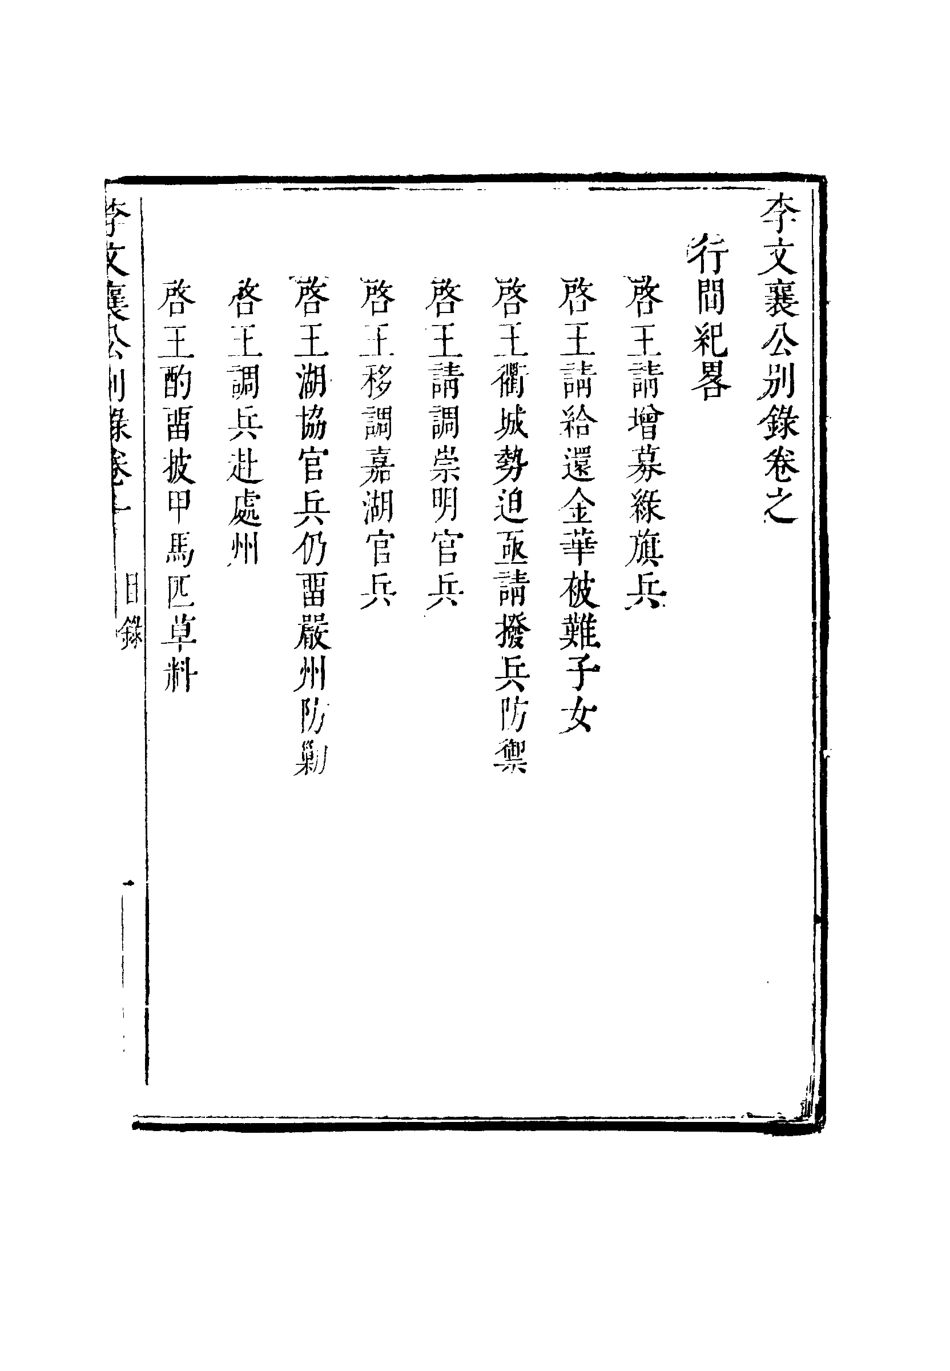 李文襄公別錄卷之
行間紀畧
啓王請增募綠旗兵
啓王請給還金華被難子女
啓王衢城勢迫亟請撥兵防禦
啓王請調崇明官兵
啓王移調嘉湖官兵
啓王湖協官兵仍畱嚴州防剿
啓王調兵赴處州
啓王酌畱披甲馬匹草料
李文襄公別錄卷 目錄